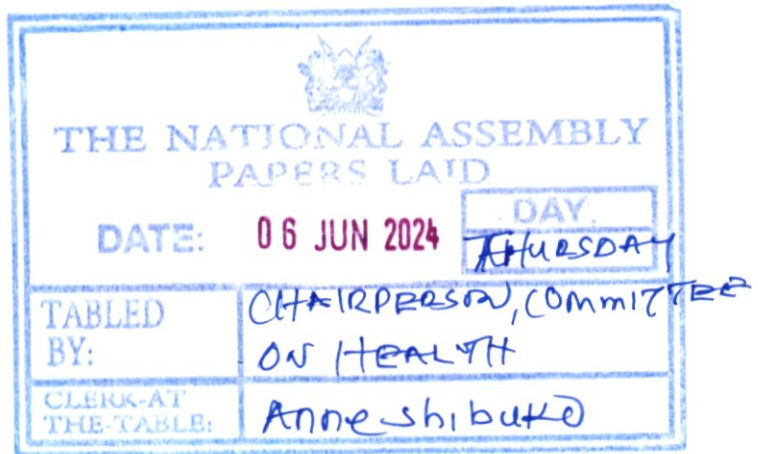 THE NATIONAL ASSEMBLY
PAPERS LAID
DATE: 06 JUN 2024
DAY.
THURSDAY
TABLED BY:
CHAIRPERSON, COMMITTEE
ON HEALTH
CLERK-AT THE-TABLE:
Anne Shibuko